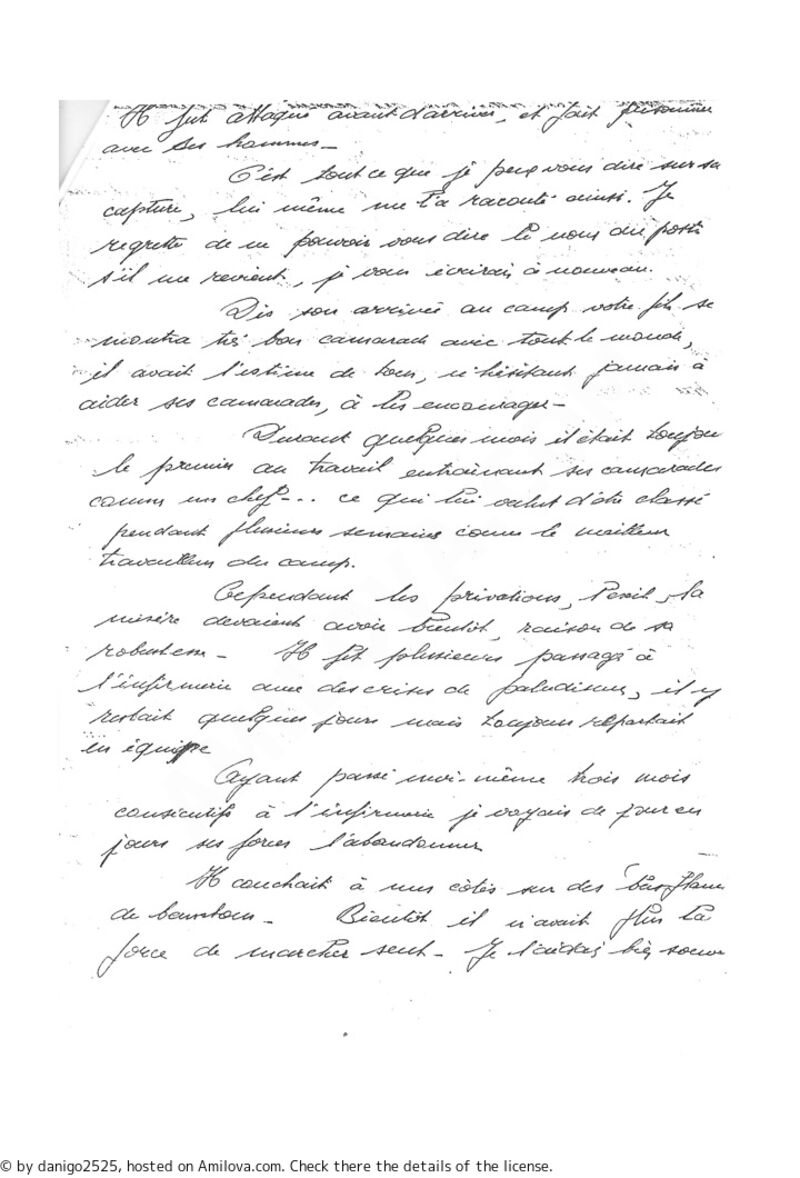 Il fut attaqué avant d'arriver, et fait prisonnier
avec ses hommes_
C'est tout ce que je peux vous dire sur sa
capture, lui même me l'a raconté ainsi. Je
regrette de ne pouvoir vous dire le nom du poste
s'il me revient, je vous écrirais à nouveau.
Dès son arrivée au camp votre fils se
montra très bon camarade avec tout le monde,
il avait l'estime de tous, n'hésitant jamais à
aider ses camarades, à les encourager_
Durant quelques mois il était toujours
le premier au travail entraînant ses camarades
comme un chef_... ce qui lui valut d'être classé
pendant plusieurs semaines comme le meilleur
travailleur du camp.
Cependant les privations, l'exil, la
misère devaient avoir bientôt, raison de sa
robustesse_ Il fit plusieurs passages à
l'infirmerie avec des crises de paludisme, il y
restait quelques jours mais toujours repartait
en équipe
Ayant passé moi-même trois mois
consécutifs à l'infirmerie je voyais de jour en
jours ses forces l'abandonner
Il couchait à mes côtés sur des bas-flancs
de bambous_ Bientôt il n'avait plus la
force de marcher seul_ Je l'aidais bien souvent
© by danigo2525, hosted on Amilova.com. Check there the details of the license.